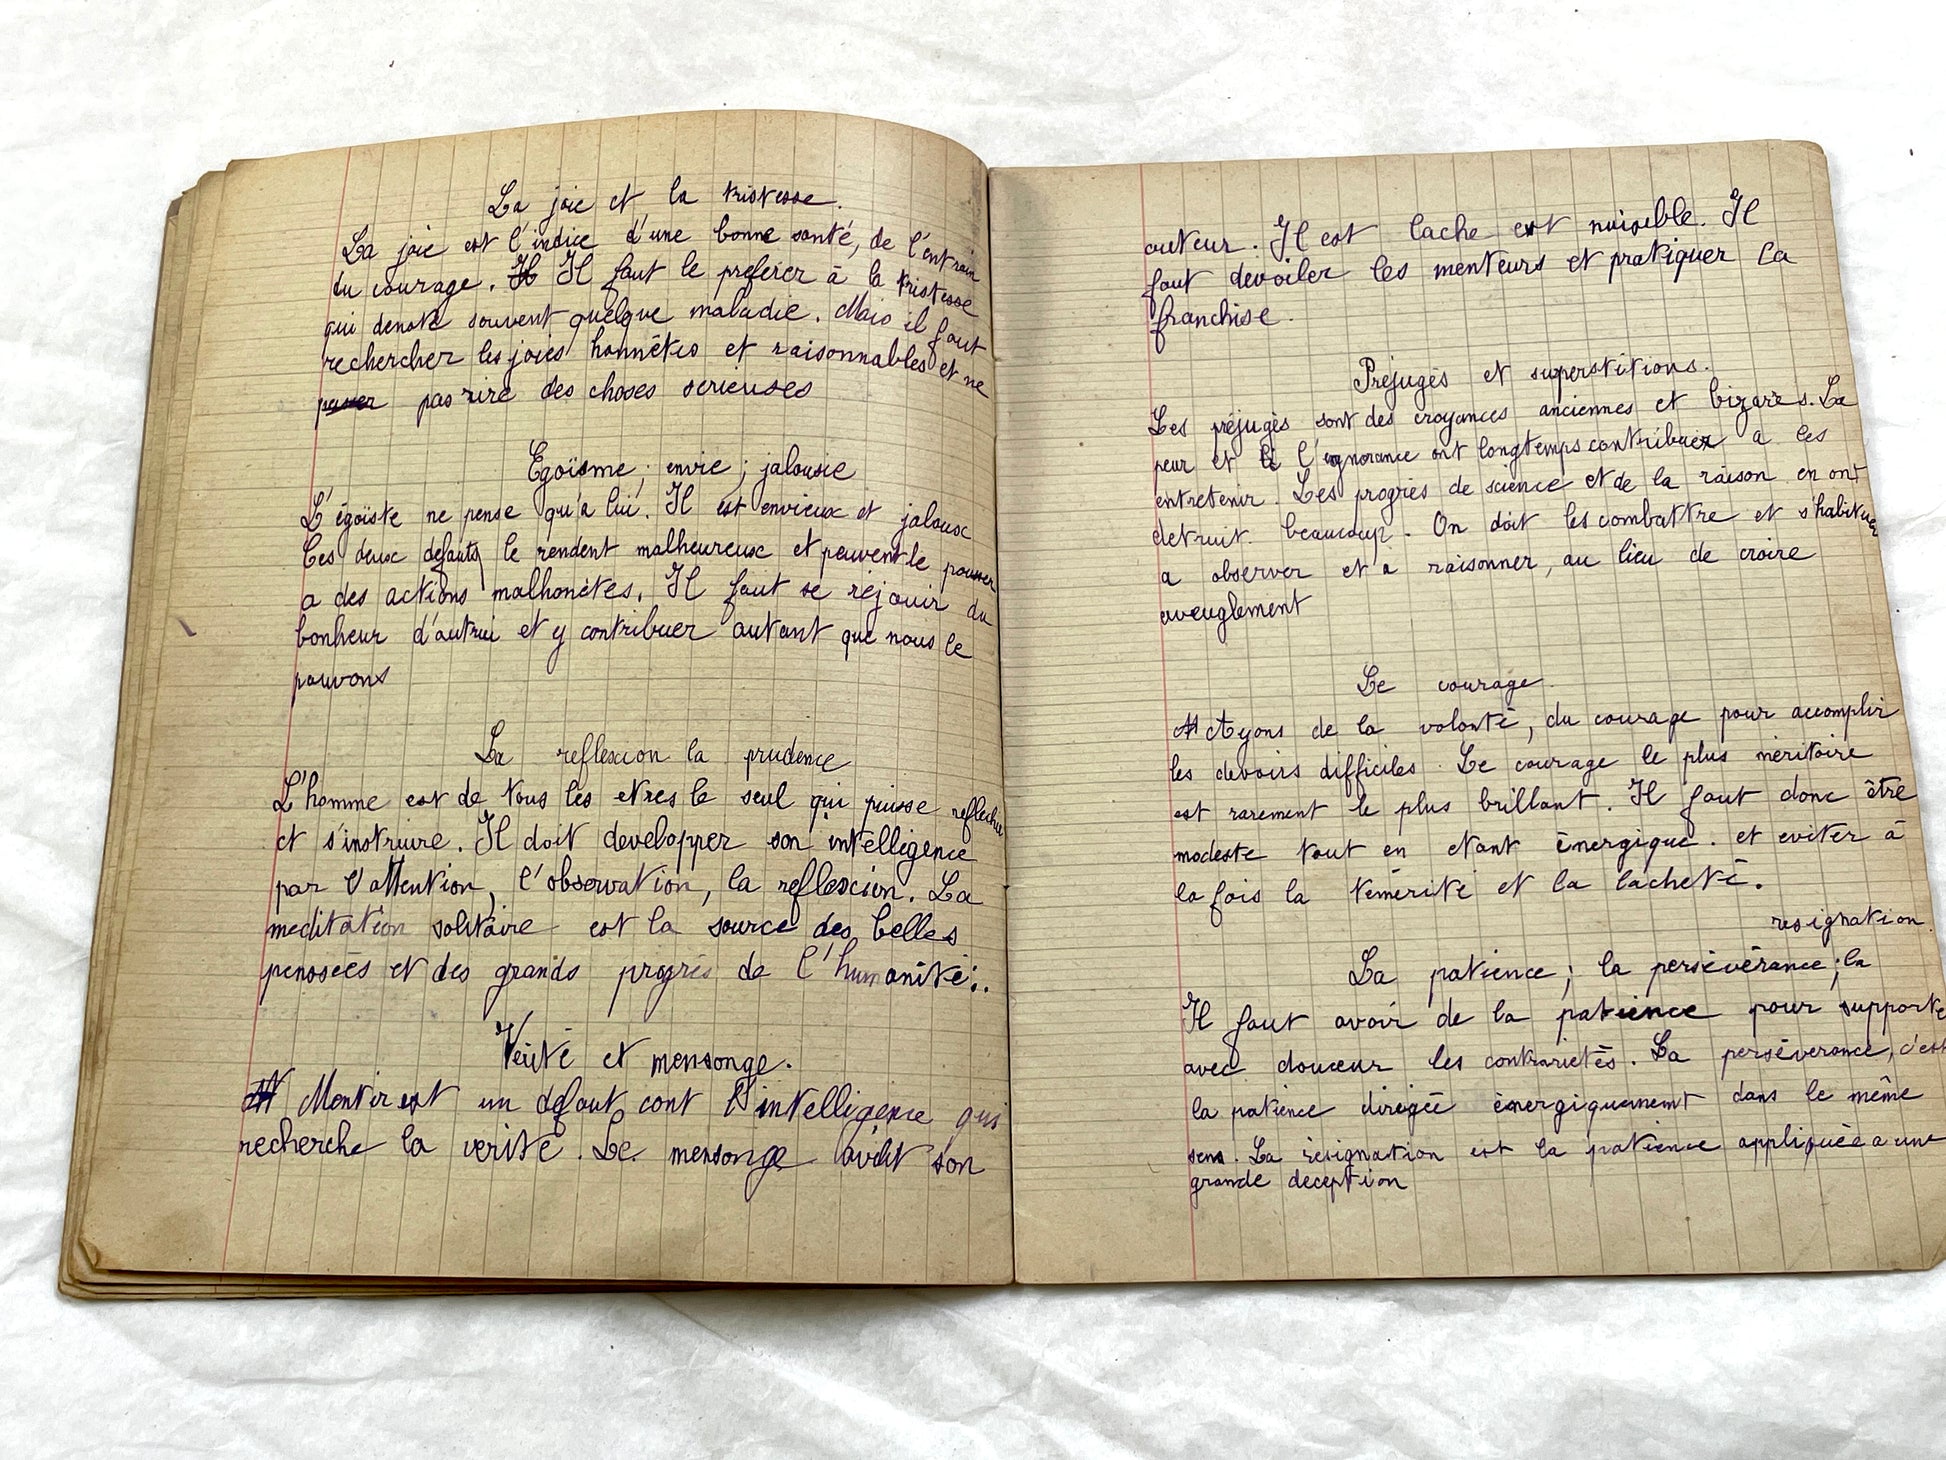 La joie et la tristesse.
La joie est l'indice d'une bonne santé, de l'entrain
du courage. Il Il faut le preferer à la tristesse
qui denote souvent quelque maladie. Mais il faut
rechercher les joies honnêtes et raisonnables et ne
passer pas rire des choses serieuses
Egoïsme ; envie ; jalousie
L'égoïste ne pense qu'a lui. Il est envieux et jaloux
Ces deux defauts le rendent malheureux et peuvent le pousser
a des actions malhonètes. Il faut se réjouir du
bonheur d'autrui et y contribuer autant que nous le
pouvons
La reflexion la prudence
L'homme est de tous les etres le seul qui puisse reflechir
et s'instruire. Il doit developper son intelligence
par l'attention, l'observation, la reflexion. La
meditation solitaire est la source des belles
penseés et des grands progrès de l'humanité.
Verité et mensonge.
Mentir est un defaut cont l'intelligence qui
recherche la verité. Le mensonge avilit son
auteur. Il est lache est nuisible. Il
faut devoiler les menteurs et pratiquer la
franchise.
Préjugés et superstitions.
Les préjugés sont des croyances anciennes et bizares. La
peur et l'ignorance ont longtemps contribuer a les
entretenir. Les progrès de science et de la raison en ont
detruit beaucoup. On doit les combattre et s'habituer
a observer et à raisonner, au lieu de croire
aveuglement
Le courage.
Ayons de la volonté, du courage pour accomplir
les devoirs difficiles. Le courage le plus méritoire
est rarement le plus brillant. Il faut donc être
modeste tout en etant énergique. et eviter à
la fois la témérité et la lacheté.
resignation.
La patience ; la persévérance ; la
Il faut avoir de la patience pour supporte
avec douceur les contrarietés. La perséverance, c'est
la patience dirigée énergiquement dans le même
sens. La résignation est la patience appliquée a une
grande deception